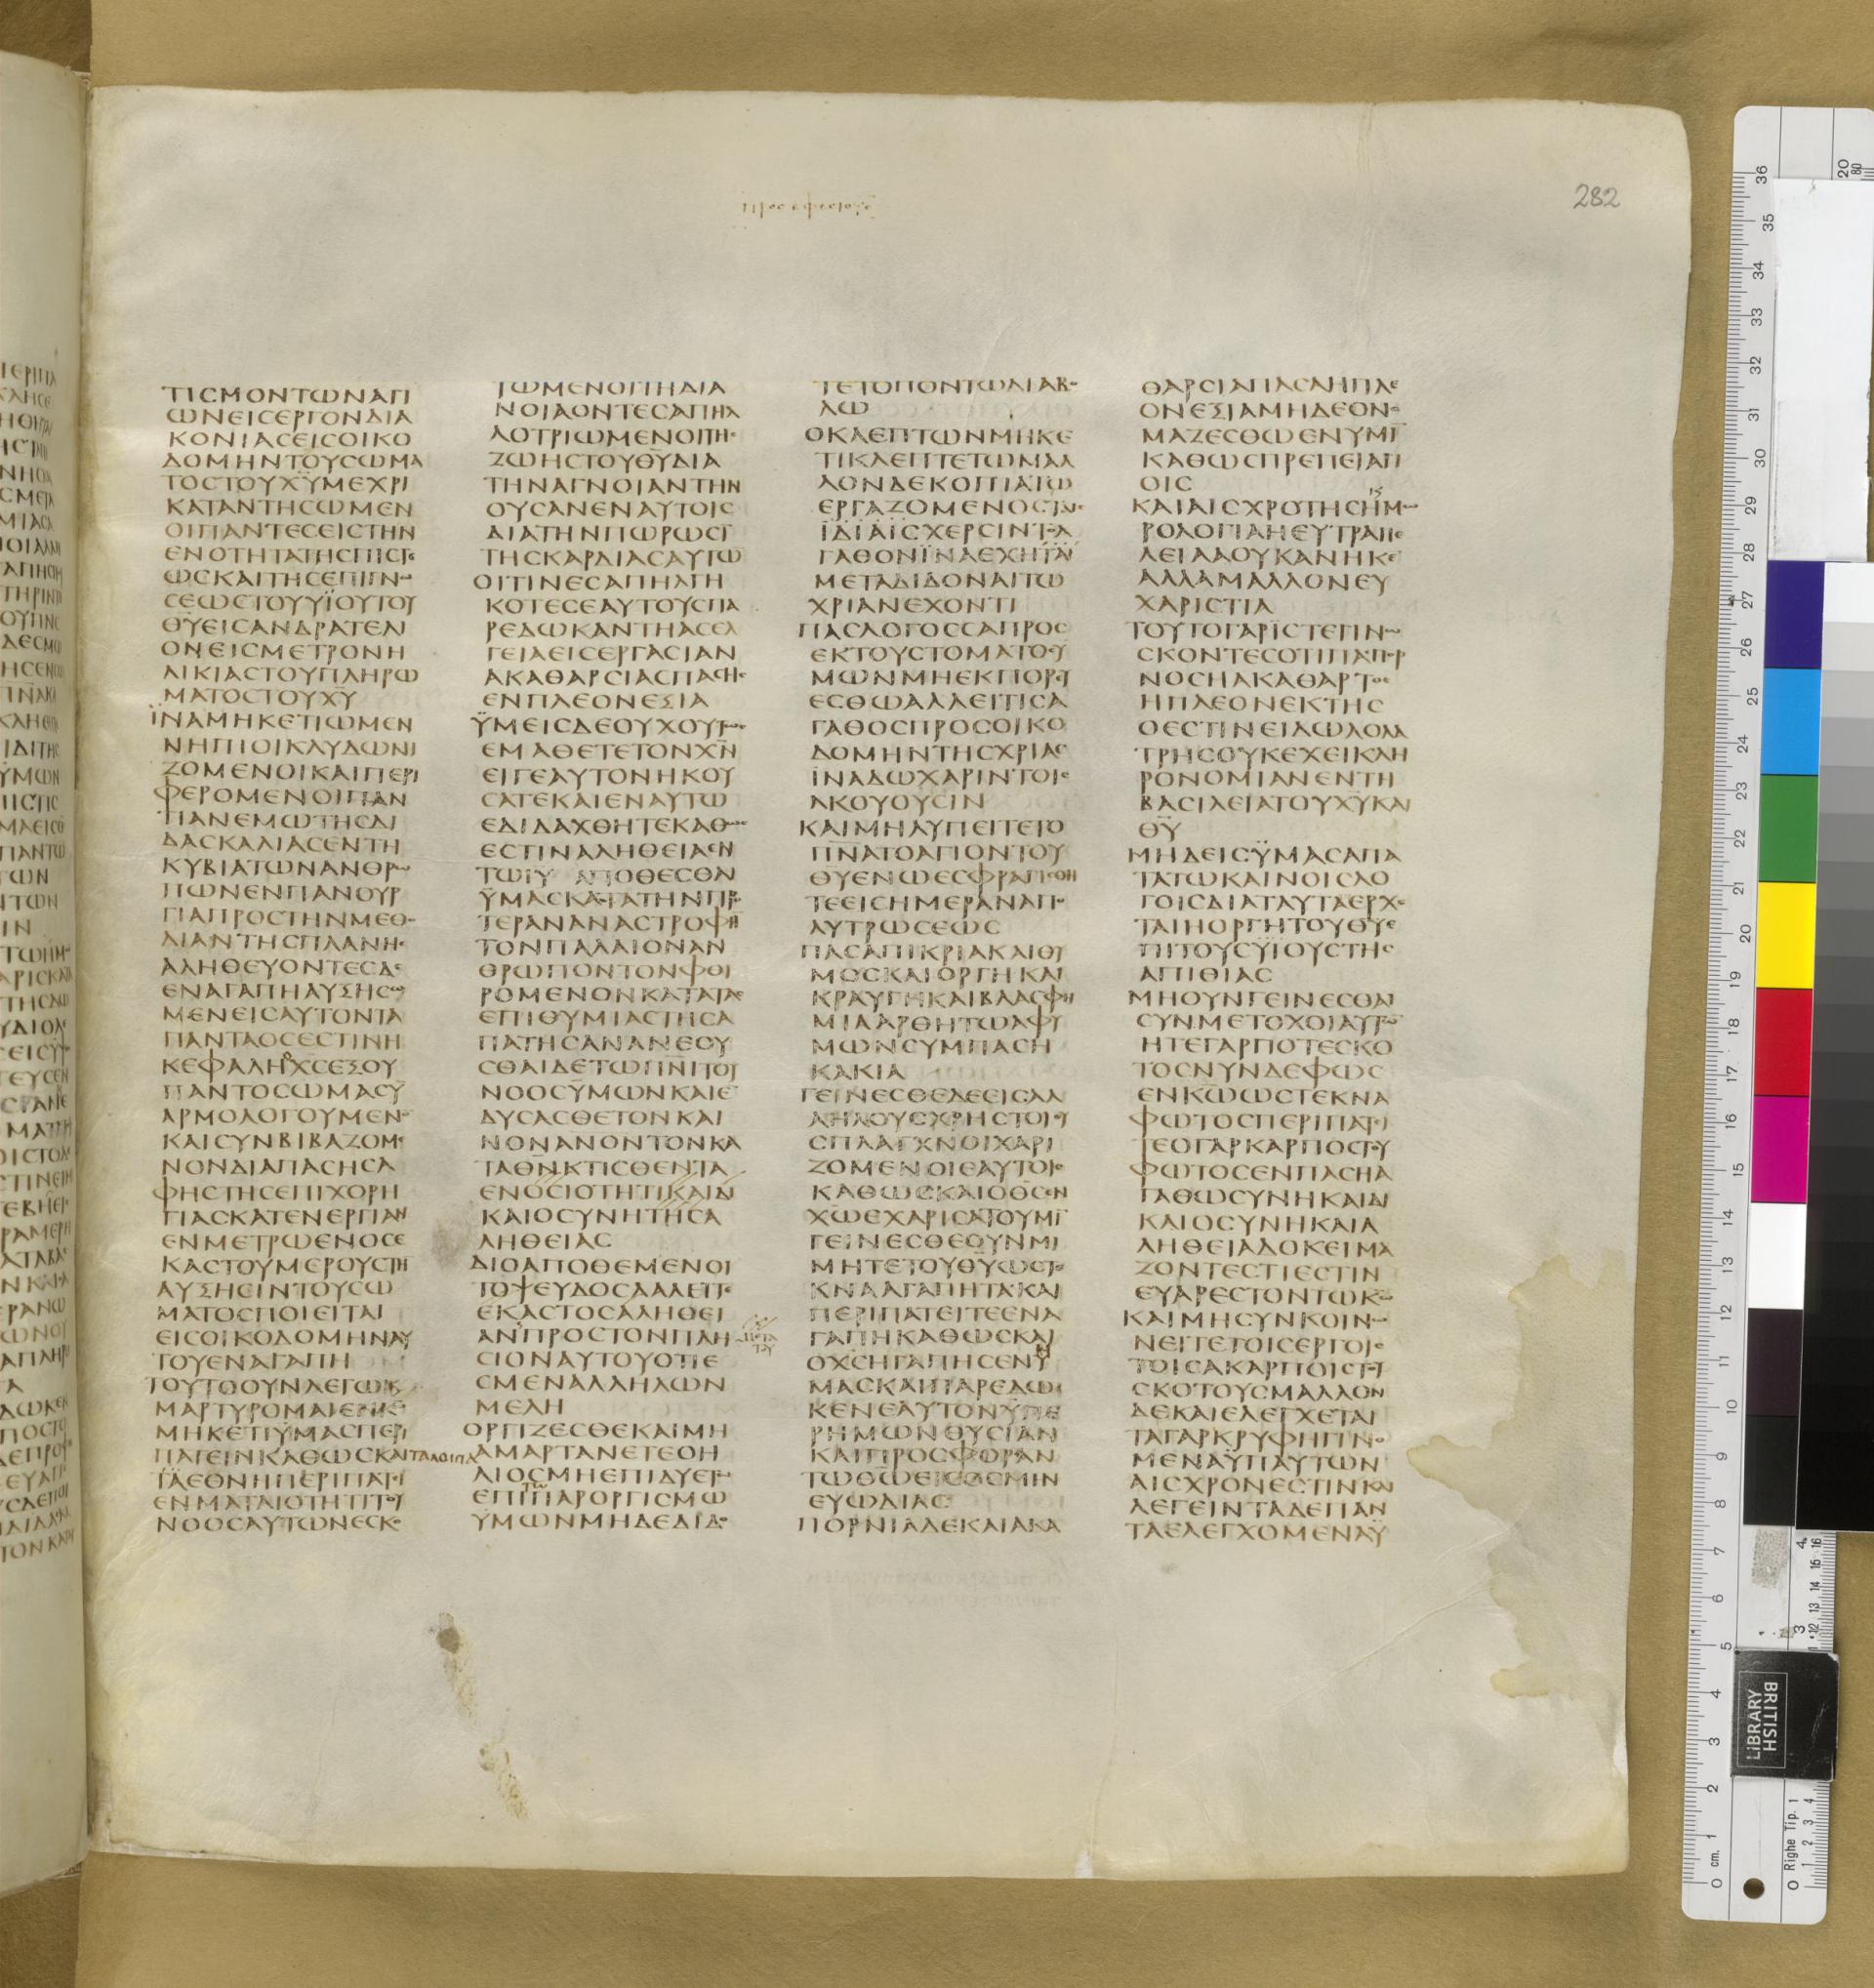 προσ εφεσιουσ
282
ΤΙϹΜΟΝΤΩΝΑΓΙ
ΩΝΕΙϹΕΡΓΟΝΔΙΑ
ΚΟΝΙΑϹΕΙϹΟΙΚΟ
ΔΟΜΗΝΤΟΥϹΩΜΑ
ΤΟϹΤΟΥΧΥΜΕΧΡΙ
ΚΑΤΑΝΤΗϹΩΜΕΝ
ΟΙΠΑΝΤΕϹΕΙϹΤΗΝ
ΕΝΟΤΗΤΑΤΗϹΠΙϹΤΕ
ΩϹΚΑΙΤΗϹΕΠΙΓΝΩ
ϹΕΩϹΤΟΥΥΪΟΥΤΟΥ
ΘΥΕΙϹΑΝΔΡΑΤΕΛΙ
ΟΝΕΙϹΜΕΤΡΟΝΗ
ΛΙΚΙΑϹΤΟΥΠΛΗΡΩ
ΜΑΤΟϹΤΟΥΧΥ
ΪΝΑΜΗΚΕΤΙΩΜΕΝ
ΝΗΠΙΟΙΚΛΥΔΩΝΙ
ΖΟΜΕΝΟΙΚΑΙΠΕΡΙ
ΦΕΡΟΜΕΝΟΙΠΑΝ
ΤΙΑΝΕΜΩΤΗϹΔΙ
ΔΑϹΚΑΛΙΑϹΕΝΤΗ
ΚΥΒΙΑΤΩΝΑΝΘΡΩ
ΠΩΝΕΝΠΑΝΟΥΡ
ΓΙΑΠΡΟϹΤΗΝΜΕΘΟ
ΔΙΑΝΤΗϹΠΛΑΝΗϹ
ΑΛΗΘΕΥΟΝΤΕϹΔΕ
ΕΝΑΓΑΠΗΑΥΞΗϹΩ
ΜΕΝΕΙϹΑΥΤΟΝΤΑ
ΠΑΝΤΑΟϹΕϹΤΙΝΗ
ΚΕΦΑΛΗΟΧϹΕΞΟΥ
ΠΑΝΤΟϹΩΜΑϹΥ
ΑΡΜΟΛΟΓΟΥΜΕΝΟ
ΚΑΙϹΥΝΒΙΒΑΖΟΜΕ
ΝΟΝΔΙΑΠΑϹΗϹΑ
ΦΗϹΤΗϹΕΠΙΧΟΡΗ
ΓΙΑϹΚΑΤΕΝΕΡΓΙΑΝ
ΕΝΜΕΤΡΩΕΝΟϹΕ
ΚΑϹΤΟΥΜΕΡΟΥϹΤΗ
ΑΥΞΗϹΙΝΤΟΥϹΩ
ΜΑΤΟϹΠΟΙΕΙΤΑΙ
ΕΙϹΟΙΚΟΔΟΜΗΝΑΥ
ΤΟΥΕΝΑΓΑΠΗ
ΤΟΥΤΟΟΥΝΛΕΓΩΚ
ΜΑΡΤΥΡΟΜΑΙΕΝΚΩ
ΜΗΚΕΤΙΫΜΑϹΠΕΡΙ
ΠΑΤΕΙΝΚΑΘΩϹΚΑΙΤΑΛΟΙΠΑ
ΤΑΕΘΝΗΠΕΡΙΠΑΤΙ
ΕΝΜΑΤΑΙΟΤΗΤΙΤΟΥ
ΝΟΟϹΑΥΤΩΝΕϹΚΟ
ΤΩΜΕΝΟΙΤΗΔΙΑ
ΝΟΙΑΟΝΤΕϹΑΠΗΛ
ΛΟΤΡΙΩΜΕΝΟΙΤΗϹ
ΖΩΗϹΤΟΥΘΥΔΙΑ
ΤΗΝΑΓΝΟΙΑΝΤΗΝ
ΟΥϹΑΝΕΝΑΥΤΟΙϹ
ΔΙΑΤΗΝΠΩΡΩϹΙ
ΤΗϹΚΑΡΔΙΑϹΑΥΤΩ
ΟΙΤΙΝΕϹΑΠΗΛΓΗ
ΚΟΤΕϹΕΑΥΤΟΥϹΠΑ
ΡΕΔΩΚΑΝΤΗΑϹΕΛ
ΓΕΙΑΕΙϹΕΡΓΑϹΙΑΝ
ΑΚΑΘΑΡϹΙΑϹΠΑϹΗϹ
ΕΝΠΛΕΟΝΕΞΙΑ
ΫΜΕΙϹΔΕΟΥΧΟΥΤΩϹ
ΕΜΑΘΕΤΕΤΟΝΧΝ
ΕΙΓΕΑΥΤΟΝΗΚΟΥ
ϹΑΤΕΚΑΙΕΝΑΥΤΩ
ΕΔΙΔΑΧΘΗΤΕΚΑΘΩϹ
ΕϹΤΙΝΑΛΗΘΕΙΑΕΝ
ΤΩΙΥ ΑΠΟΘΕϹΘΑΙ
ΫΜΑϹΚΑΤΑΤΗΝΠΡΟ
ΤΕΡΑΝΑΝΑϹΤΡΟΦΗ
ΤΟΝΠΑΛΑΙΟΝΑΝ
ΘΡΩΠΟΝΤΟΝΦΘΙ
ΡΟΜΕΝΟΝΚΑΤΑΤΑϹ
ΕΠΙΘΥΜΙΑϹΤΗϹΑ
ΠΑΤΗϹΑΝΑΝΕΟΥ
ϹΘΑΙΔΕΤΩΠΝΙΤΟΥ
ΝΟΟϹΫΜΩΝΚΑΙΕ
ΔΥϹΑϹΘΕΤΟΝΚΑΙ
ΝΟΝΑΝΟΝΤΟΝΚΑ
ΤΑΘΝΚΤΙϹΘΕΝΤΑ
ΕΝΟϹΙΟΤΗΤΙΚΑΙΔΙ
ΚΑΙΟϹΥΝΗΤΗϹΑ
ΛΗΘΕΙΑϹ
ΔΙΟΑΠΟΘΕΜΕΝΟΙ
ΤΟΨΕΥΔΟϹΛΑΛΕΙΤΕ
ΕΚΑϹΤΟϹΑΛΗΘΕΙ
ΑΝΠΡΟϹΤΟΝΠΛΗ
ϹΙΟΝΑΥΤΟΥΟΤΙΕ
ϹΜΕΝΑΛΛΗΛΩΝ
ΜΕΛΗ
ΟΡΓΙΖΕϹΘΕΚΑΙΜΗ
ΑΜΑΡΤΑΝΕΤΕΟΗ
ΛΙΟϹΜΗΕΠΙΔΥΕΤΩ
ΕΠΙΤΩΠΑΡΟΡΓΙϹΜΩ
ΫΜΩΝΜΗΔΕΔΙΔΟ
ΤΕΤΟΠΟΝΤΩΔΙΑΒΟ
ΛΩ
ΟΚΛΕΠΤΩΝΜΗΚΕ
ΤΙΚΛΕΠΤΕΤΩΜΑΛ
ΛΟΝΔΕΚΟΠΙΑΤΩ
ΕΡΓΑΖΟΜΕΝΟϹΤΑΙϹ
ΪΔΙΑΙϹΧΕΡϹΙΝΤΟΑ
ΓΑΘΟΝΪΝΑΕΧΗΤΑΙ
ΜΕΤΑΔΙΔΟΝΑΙΤΩ
ΧΡΙΑΝΕΧΟΝΤΙ
ΠΑϹΛΟΓΟϹϹΑΠΡΟϹ
ΕΚΤΟΥϹΤΟΜΑΤΟϹΥ
ΜΩΝΜΗΕΚΠΟΡΕΥ
ΕϹΘΩΑΛΛΕΙΤΙϹΑ
ΓΑΘΟϹΠΡΟϹΟΙΚΟ
ΔΟΜΗΝΤΗϹΧΡΙΑϹ
ΪΝΑΔΩΧΑΡΙΝΤΟΙϹ
ΑΚΟΥΟΥϹΙΝ
ΚΑΙΜΗΛΥΠΕΙΤΕΤΟ
ΠΝΑΤΟΑΓΙΟΝΤΟΥ
ΘΥΕΝΩΕϹΦΡΑΓΙϹΘΗ
ΤΕΕΙϹΗΜΕΡΑΝΑΠΟ
ΛΥΤΡΩϹΕΩϹ
ΠΑϹΑΠΙΚΡΙΑΚΑΙΘΥ
ΜΟϹΚΑΙΟΡΓΗΚΑΙ
ΚΡΑΥΓΗΚΑΙΒΛΑϹΦΗ
ΜΙΑΑΡΘΗΤΩΑΦΥ
ΜΩΝϹΥΜΠΑϹΗ
ΚΑΚΙΑ
ΓΕΙΝΕϹΘΕΔΕΕΙϹΑΛ
ΛΗΛΟΥϹΧΡΗϹΤΟΙΕΥ
ϹΠΛΑΓΧΝΟΙΧΑΡΙ
ΖΟΜΕΝΟΙΕΑΥΤΟΙϹ
ΚΑΘΩϹΚΑΙΟΘϹΕΝ
ΧΩΕΧΑΡΙϹΑΤΟΥΜΙ
ΓΕΙΝΕϹΘΕΟΥΝΜΙ
ΜΗΤΕΤΟΥΘΥΩϹΤΕ
ΚΝΑΑΓΑΠΗΤΑΚΑΙ
ΠΕΡΙΠΑΤΕΙΤΕΕΝΑ
ΓΑΠΗΚΑΘΩϹΚΑΙ
ΟΧϹΗΓΑΠΗϹΕΝΥ
ΜΑϹΚΑΙΠΑΡΕΔΩ
ΚΕΝΕΑΥΤΟΝΫΠΕ
ΡΗΜΩΝΘΥϹΙΑΝ
ΚΑΙΠΡΟϹΦΟΡΑΝ
ΤΩΘΩΕΙϹΟϹΜΗΝ
ΕΥΩΔΙΑϹ
ΠΟΡΝΙΑΔΕΚΑΙΑΚΑ
ΘΑΡϹΙΑΠΑϹΑΗΠΛΕ
ΟΝΕΞΙΑΜΗΔΕΟΝΟ
ΜΑΖΕϹΘΩΕΝΥΜΙ
ΚΑΘΩϹΠΡΕΠΕΙΑΓΙ
ΟΙϹ
ΚΑΙΑΙϹΧΡΟΤΗϹΗΜΩ
ΡΟΛΟΓΙΑΗΕΥΤΡΑΠΕ
ΛΕΙΑΑΟΥΚΑΝΗΚΕ
ΑΛΛΑΜΑΛΛΟΝΕΥ
ΧΑΡΙϹΤΙΑ
ΤΟΥΤΟΓΑΡΙϹΤΕΓΙΝΩ
ϹΚΟΝΤΕϹΟΤΙΠΑϹΠΟΡ
ΝΟϹΗΑΚΑΘΑΡΤΟϹ
ΗΠΛΕΟΝΕΚΤΗϹ
ΟΕϹΤΙΝΕΙΔΩΛΟΛΑ
ΤΡΗϹΟΥΚΕΧΕΙΚΛΗ
ΡΟΝΟΜΙΑΝΕΝΤΗ
ΒΑϹΙΛΕΙΑΤΟΥΧΥΚΑΙ
ΘΥ
ΜΗΔΕΙϹΫΜΑϹΑΠΑ
ΤΑΤΩΚΑΙΝΟΙϹΛΟ
ΓΟΙϹΔΙΑΤΑΥΤΑΕΡΧΕ
ΤΑΙΗΟΡΓΗΤΟΥΘΥΕ
ΠΙΤΟΥϹΫΙΟΥϹΤΗϹ
ΑΠΙΘΙΑϹ
ΜΗΟΥΝΓΕΙΝΕϹΘΑΙ
ϹΥΝΜΕΤΟΧΟΙΑΥΤΩ
ΗΤΕΓΑΡΠΟΤΕϹΚΟ
ΤΟϹΝΥΝΔΕΦΩϹ
ΕΝΚΩΩϹΤΕΚΝΑ
ΦΩΤΟϹΠΕΡΙΠΑΤΙ
ΤΕΟΓΑΡΚΑΡΠΟϹΤΟΥ
ΦΩΤΟϹΕΝΠΑϹΗΑ
ΓΑΘΩϹΥΝΗΚΑΙΔΙ
ΚΑΙΟϹΥΝΗΚΑΙΑ
ΛΗΘΕΙΑΔΟΚΕΙΜΑ
ΖΟΝΤΕϹΤΙΕϹΤΙΝ
ΕΥΑΡΕϹΤΟΝΤΩΚΩ
ΚΑΙΜΗϹΥΝΚΟΙΝΩ
ΝΕΙΤΕΤΟΙϹΕΡΓΟΙϹ
ΤΟΙϹΑΚΑΡΠΟΙϹΤΟΥ
ϹΚΟΤΟΥϹΜΑΛΛΟΝ
ΔΕΚΑΙΕΛΕΓΧΕΤΑΙ
ΤΑΓΑΡΚΡΥΦΗΓΙΝΟ
ΜΕΝΑΫΠΑΥΤΩΝ
ΑΙϹΧΡΟΝΕϹΤΙΝΚΑΙ
ΛΕΓΕΙΝΤΑΔΕΠΑΝ
ΤΑΕΛΕΓΧΟΜΕΝΑΫ
BRITISH
LIBRARY